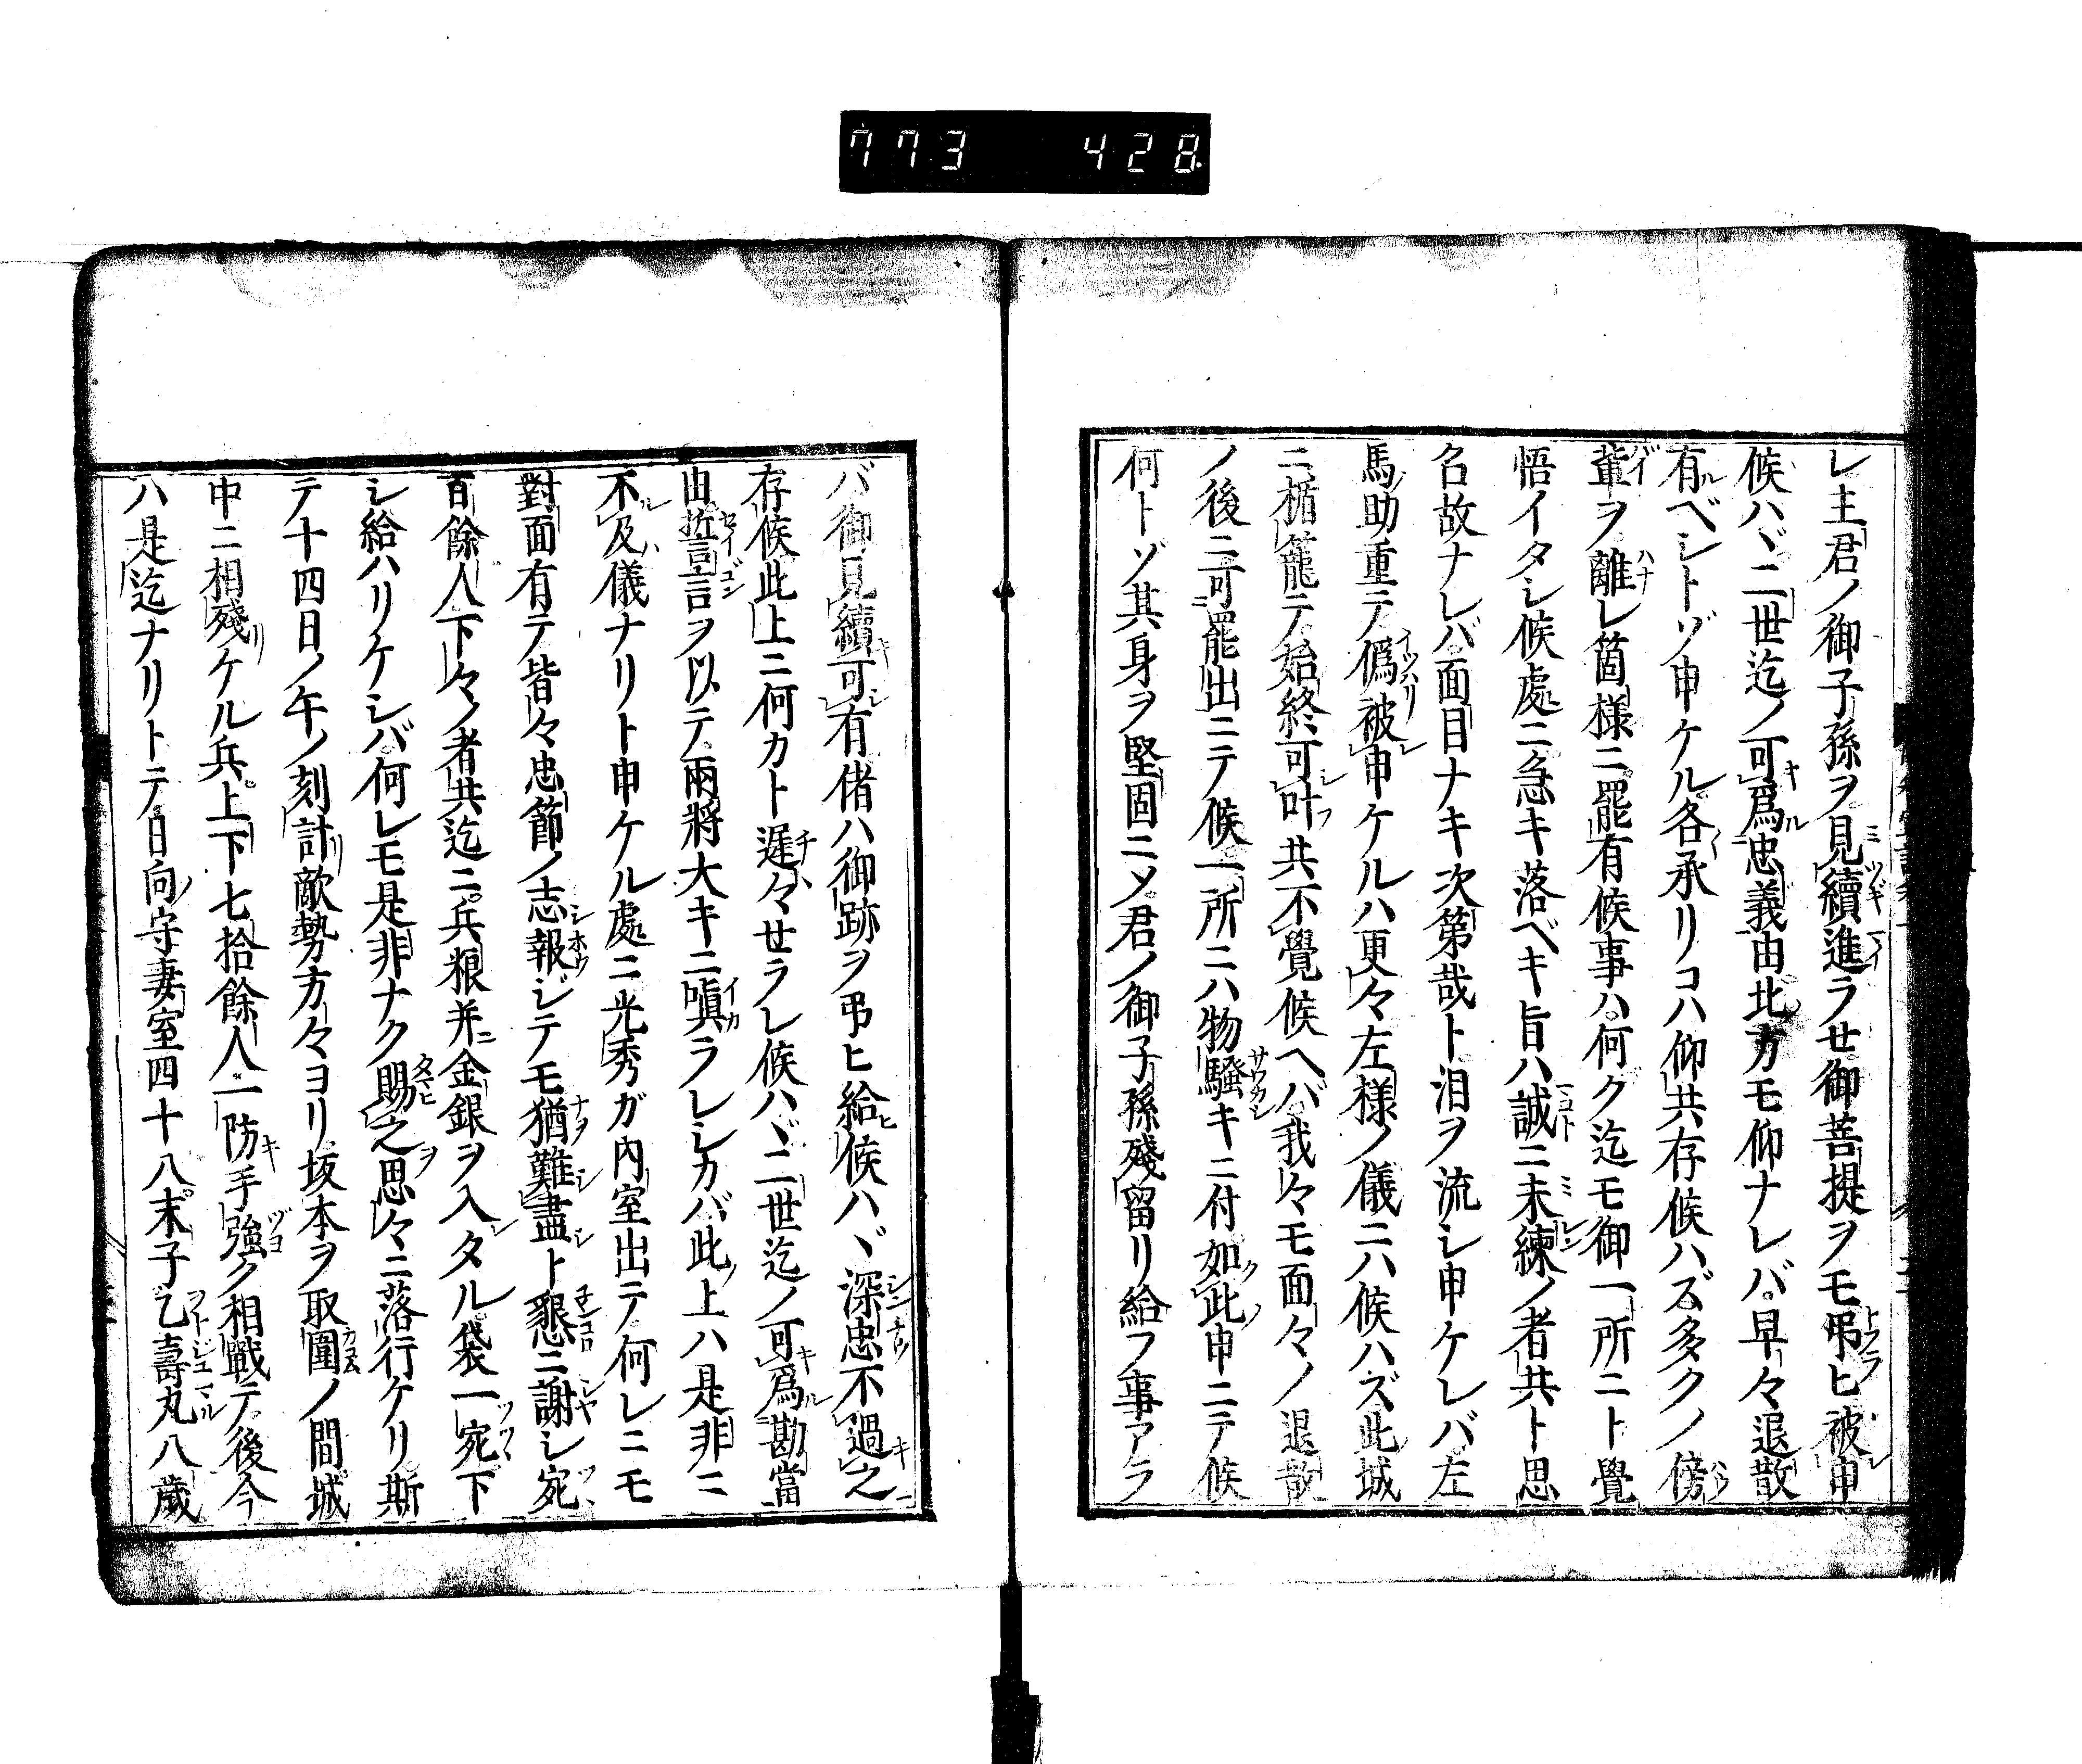 773 428
レ主君ノ御子孫ヲ見續進ラせ御菩提ヲモ弔ヒ被申
候ハヾ二世迄ノ可爲忠義由北方モ仰ナレバ早々退散
有ベシトゾ申ケル各承リコハ仰共存候ハズ多クノ傍
輩ヲ離レ箇様ニ罷有候事ハ何ク迄モ御一所ニト覺
悟イタシ候處ニ急キ落ベキ旨ハ誠ニ未練ノ者共ト思
召故ナレバ面目ナキ次第哉ト泪ヲ流シ申ケレバ左
馬助重テ僞被申ケルハ更々左様ノ儀ニハ候ハズ此城
ニ楯籠テ始終可叶共不覺候ヘバ我々モ面々ノ退散
ノ後ニ可罷出ニテ候一所ニハ物騷キニ付如此申ニテ候
何トゾ其身ヲ堅固ニメ君ノ御子孫殘留リ給フ事アラ
バ御見續可有偖ハ御跡ヲ弔ヒ給候ハヾ深忠不過之
存候此上ニ何カト遲々せラレ候ハヾ二世迄ノ可爲勘當
由誓言ヲ以テ兩將大キニ嗔ラレシカバ此上ハ是非ニ
不及儀ナリト申ケル處ニ光秀ガ内室出テ何レニモ
對面有テ皆々忠節ノ志報ジテモ猶難盡ト懇ニ謝シ宛
百餘人下々ノ者共迄ニ兵粮并金銀ヲ入タル袋一宛下
シ給ハリケレバ何レモ是非ナク賜之思々ニ落行ケリ斯
テ十四日ノ午ノ刻計敵勢方々ヨリ坂本ヲ取圍ノ間城
中ニ相殘ケル兵上下七拾餘人一防手強ク相戰テ後今
ハ是迄ナリトテ日向守妻室四十八末子乙壽丸八歲